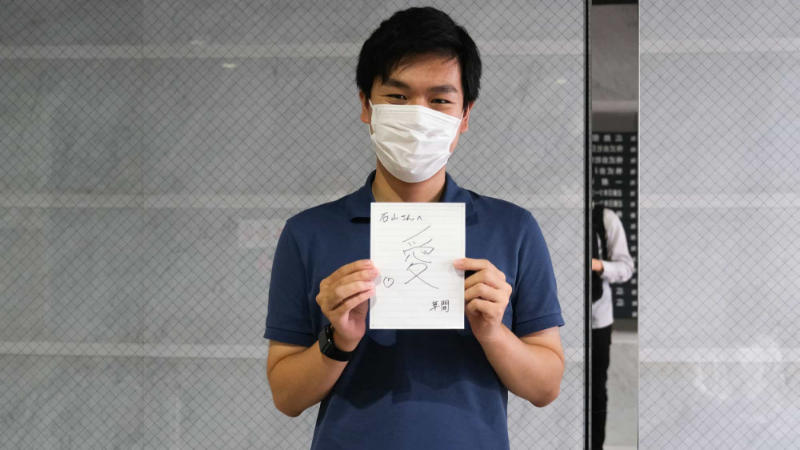 石山さんへ
愛
草間